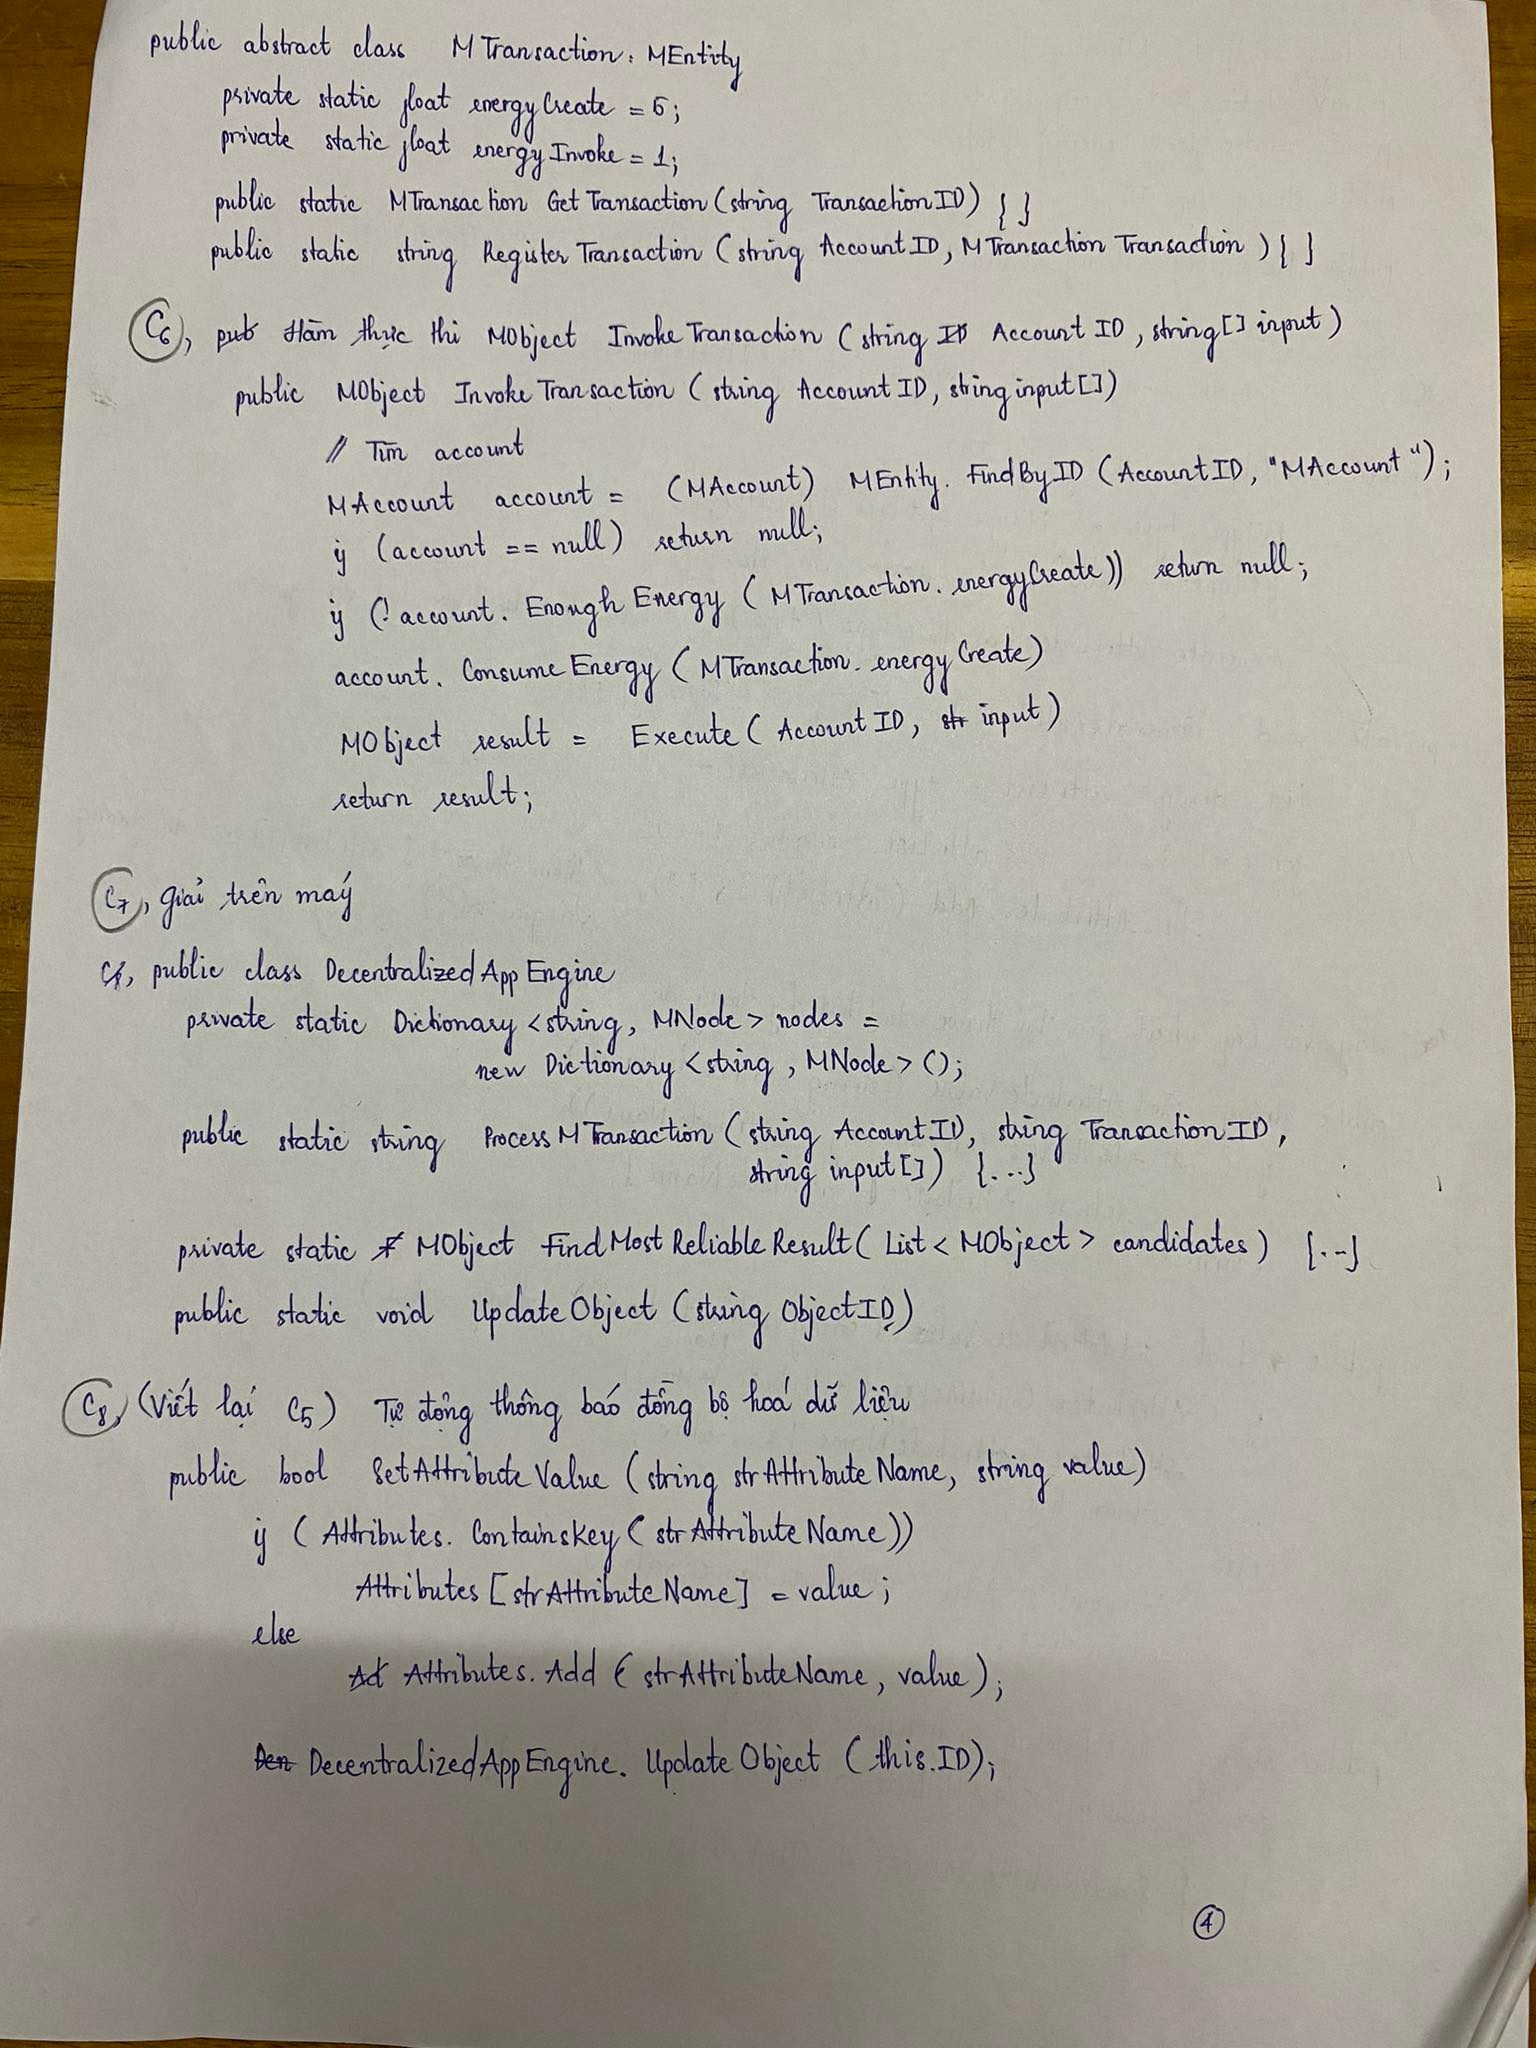 public abstract class MTransaction: MEntity
private static float energyCreate = 5;
private static float energyInvoke = 1;
public static MTransaction GetTransaction (string TransactionID) { }
public static string RegisterTransaction (string AccountID, MTransaction Transaction) { }
C6, Hàm thực thi MObject InvokeTransaction (string AccountID, string[] input)
public MObject InvokeTransaction (string AccountID, string input[])
// Tìm account
MAccount account = (MAccount) MEntity.FindByID (AccountID, "MAccount");
if (account == null) return null;
if (!account.EnoughEnergy (MTransaction.energyCreate)) return null;
account.ConsumeEnergy (MTransaction.energyCreate)
MObject result = Execute (AccountID, input)
return result;
C7, giải trên máy
public class DecentralizedAppEngine
private static Dictionary <string, MNode> nodes =
new Dictionary <string, MNode> ();
public static string ProcessMTransaction (string AccountID, string TransactionID,
string input[]) {...}
private static MObject FindMostReliableResult (List <MObject> candidates) {...}
public static void UpdateObject (string ObjectID)
C8, (Viết lại C5) Tự động thông báo đồng bộ hoá dữ liệu
public bool SetAttributeValue (string strAttributeName, string value)
if (Attributes.ContainsKey (strAttributeName))
Attributes [strAttributeName] = value;
else
Attributes.Add (strAttributeName, value);
DecentralizedAppEngine.UpdateObject (this.ID);
4